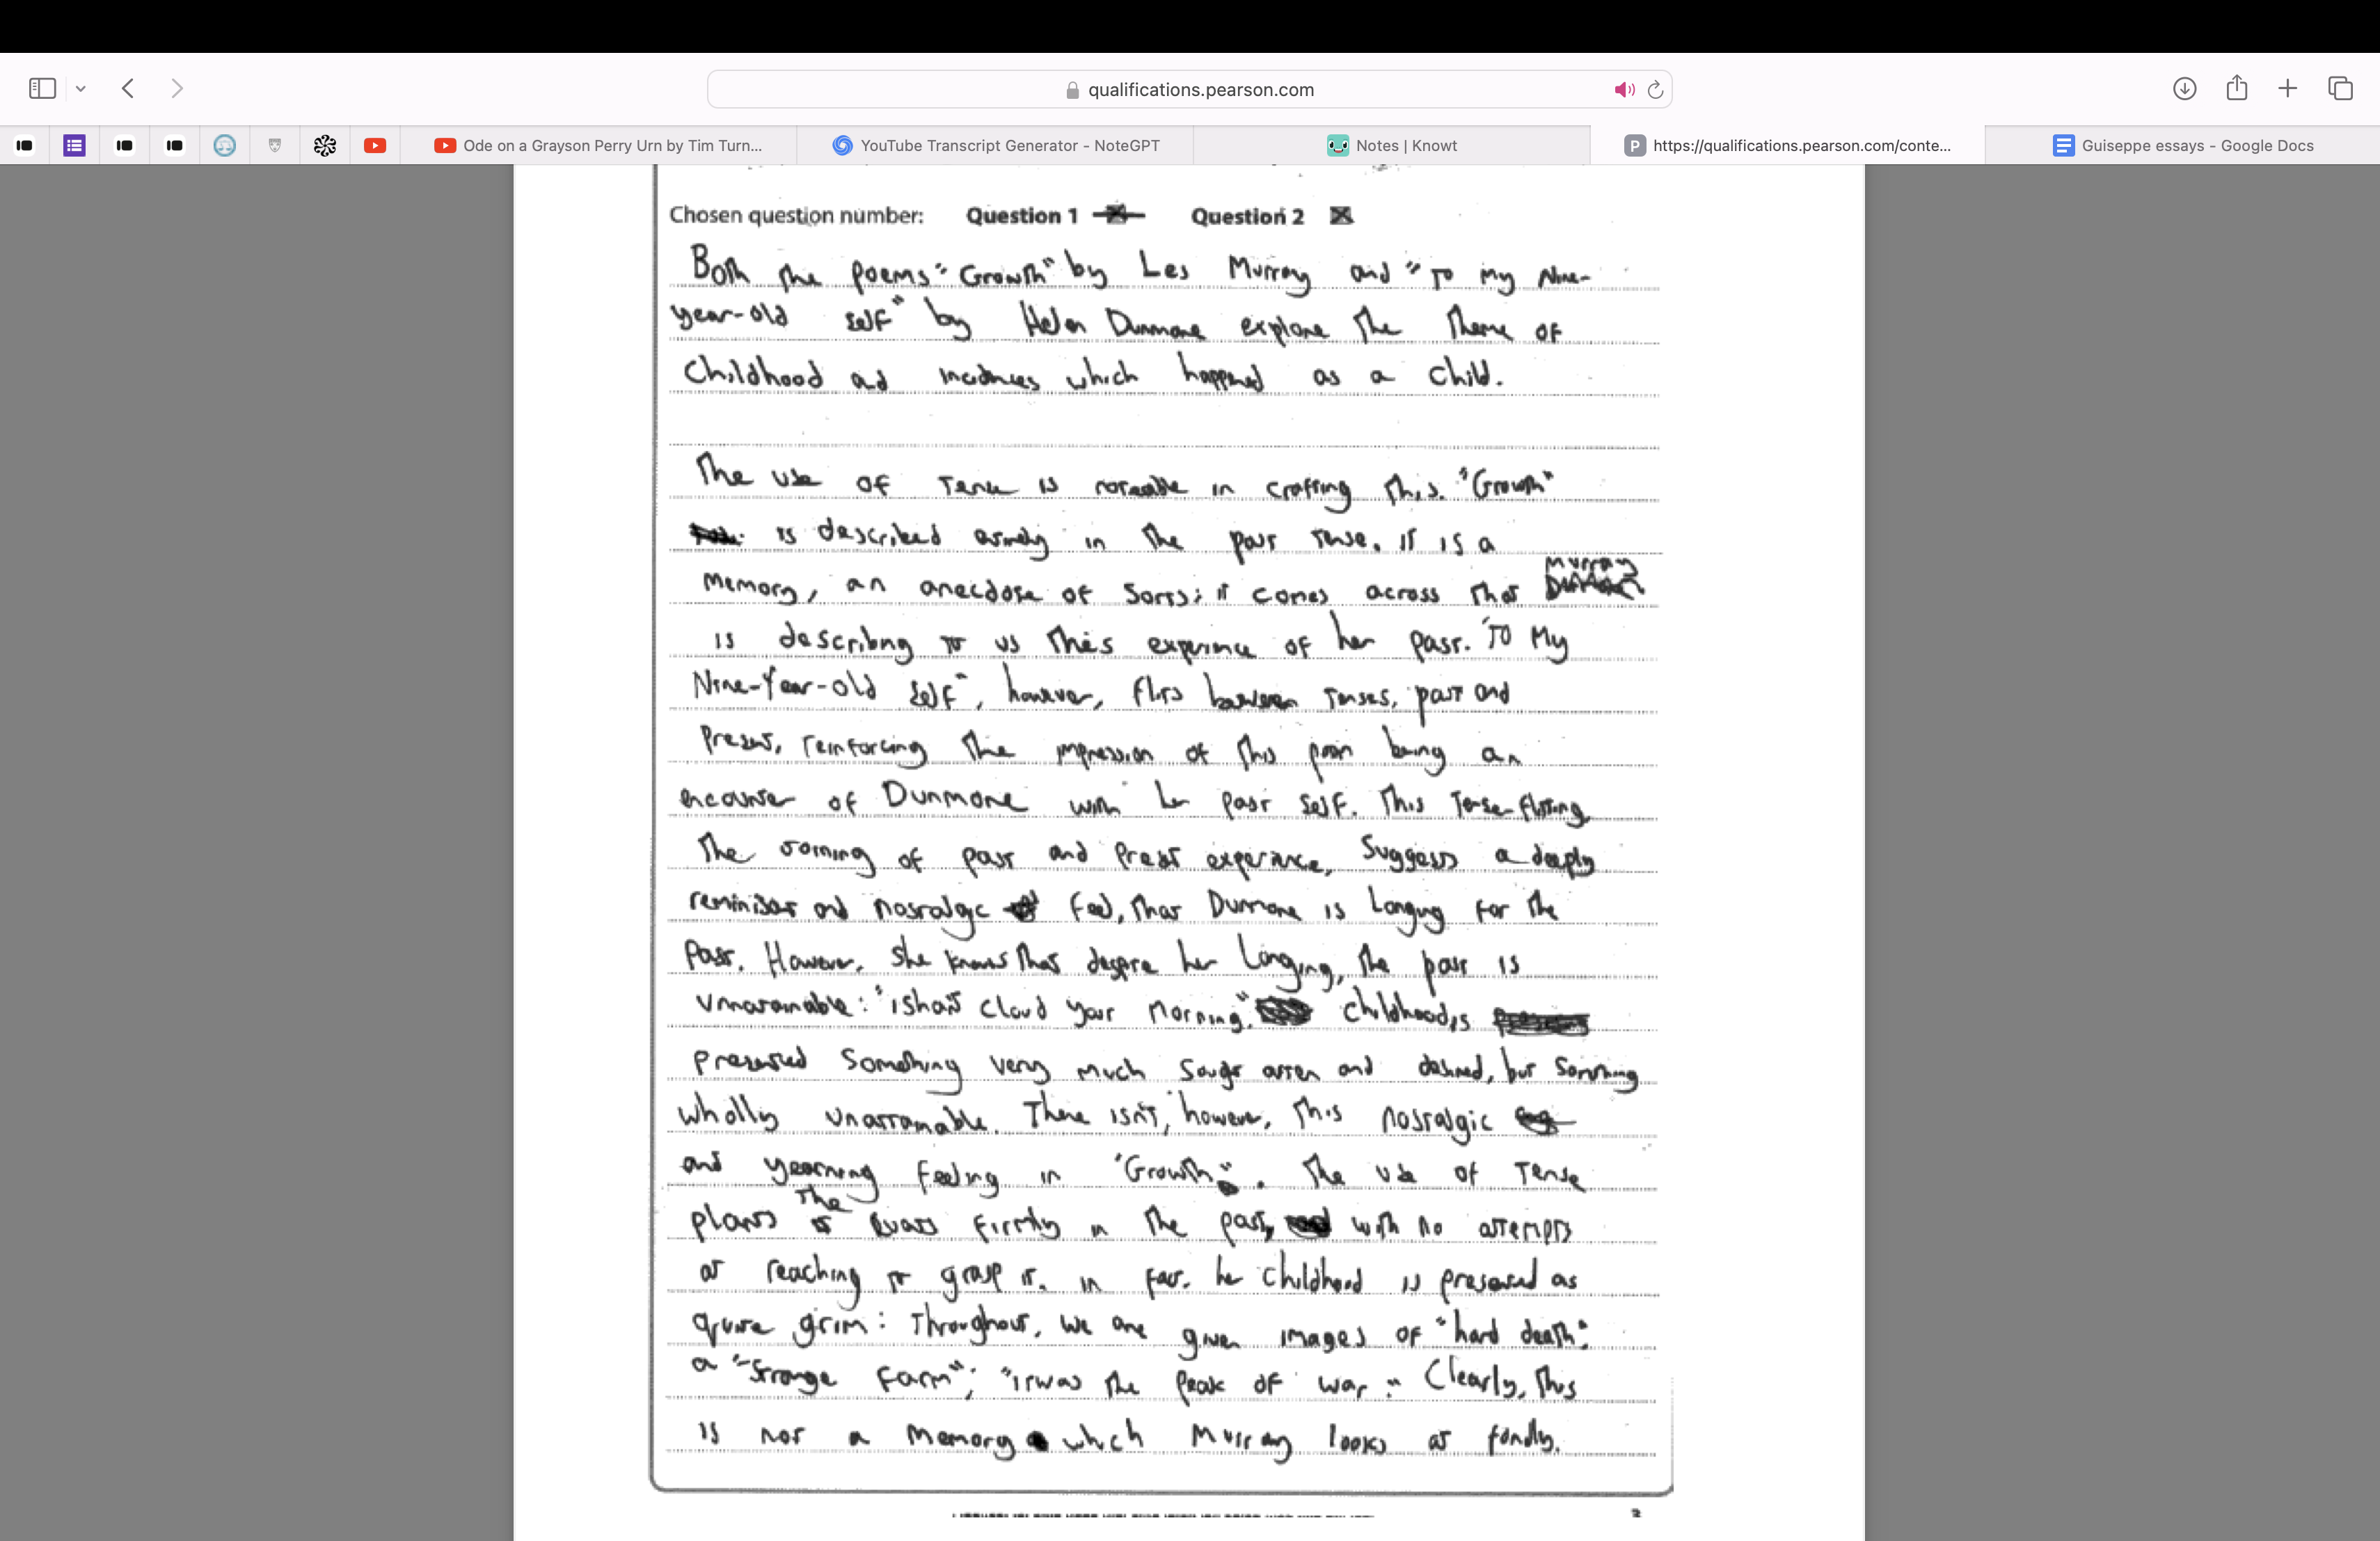 qualifications.pearson.com
Ode on a Grayson Perry Urn by Tim Turn...
YouTube Transcript Generator - NoteGPT
Notes | Knowt
https://qualifications.pearson.com/conte...
Guiseppe essays - Google Docs
Chosen question number: Question 1 Question 2
Both the poems "Growth" by Les Murray and "To my Nine-
year-old self" by Helen Dunmore explore the theme of
Childhood and which happened as a child.
The use of Tense is noteable in crafting this. "Growth"
is described in the past tense. It is a
memory, an anecdote of sorts; it comes across that Murray
is describing to us this experience of her past. "To My
Nine-Year-old self", however, flits between tenses, past and
Present, reinforcing the impression of this poem being an
encounter of Dunmore with her past self. This Tense-flitting,
The joining of past and present experience, suggests a deeply
and nostalgic feel, that Dunmore is longing for the
past. However, she knows that despite her longing, the past is
unattainable: "I shan't cloud your morning." childhood is
presented something very much sought after and desired, but something
wholly unattainable. There isn't, however, this nostalgic
and yearning feeling in "Growth". The use of Tense
plants the events firmly in the past, with no attempts
at reaching to grasp it. In fact, her childhood is presented as
quite grim: Throughout, we are given images of "hard death":
a "Strange farm"; "it was the Peak of war." Clearly, this
is not a memory which Murray looks at fondly.
3